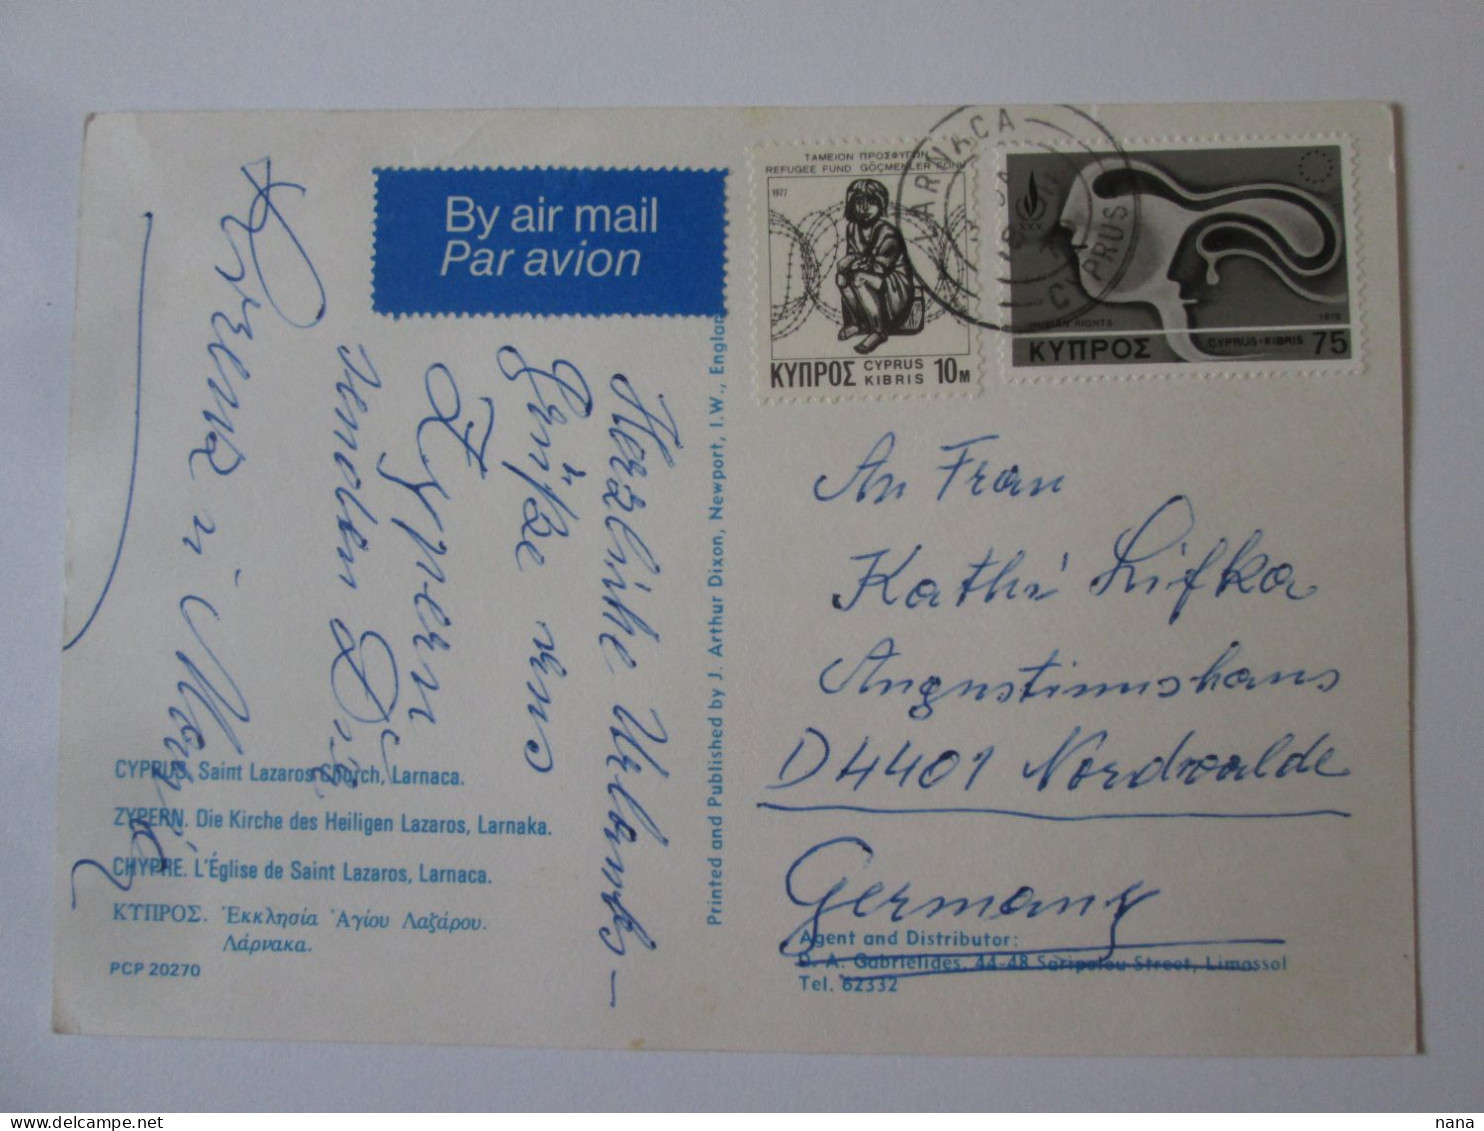 By air mail
Par avion
ΤΑΜΕΙΟΝ ΠΡΟΣΦΥΓΩΝ
REFUGEE FUND GÖÇMENLER FONU
1977
ΚΥΠΡΟΣ CYPRUS KIBRIS 10 M
LARNACA
CYPRUS
HUMAN RIGHTS
1978
ΚΥΠΡΟΣ CYPRUS·KIBRIS 75
Herzliche Urlaubs-
Grüße aus
Zypern
senden Dir
An Frau
Käthi Lifka
Augustinushaus
D 4401 Nordwalde
Germany
Printed and Published by J. Arthur Dixon, Newport, I.W., England
CYPRUS. Saint Lazaros Church, Larnaca.
ZYPERN. Die Kirche des Heiligen Lazaros, Larnaka.
CHYPRE. L'Église de Saint Lazaros, Larnaca.
ΚΥΠΡΟΣ. Ἐκκλησία Ἁγίου Λαζάρου.
Λάρνακα.
PCP 20270
Agent and Distributor:
D. A. Gabrielides, 44-48 Saripolou Street, Limassol
Tel. 62332
nana